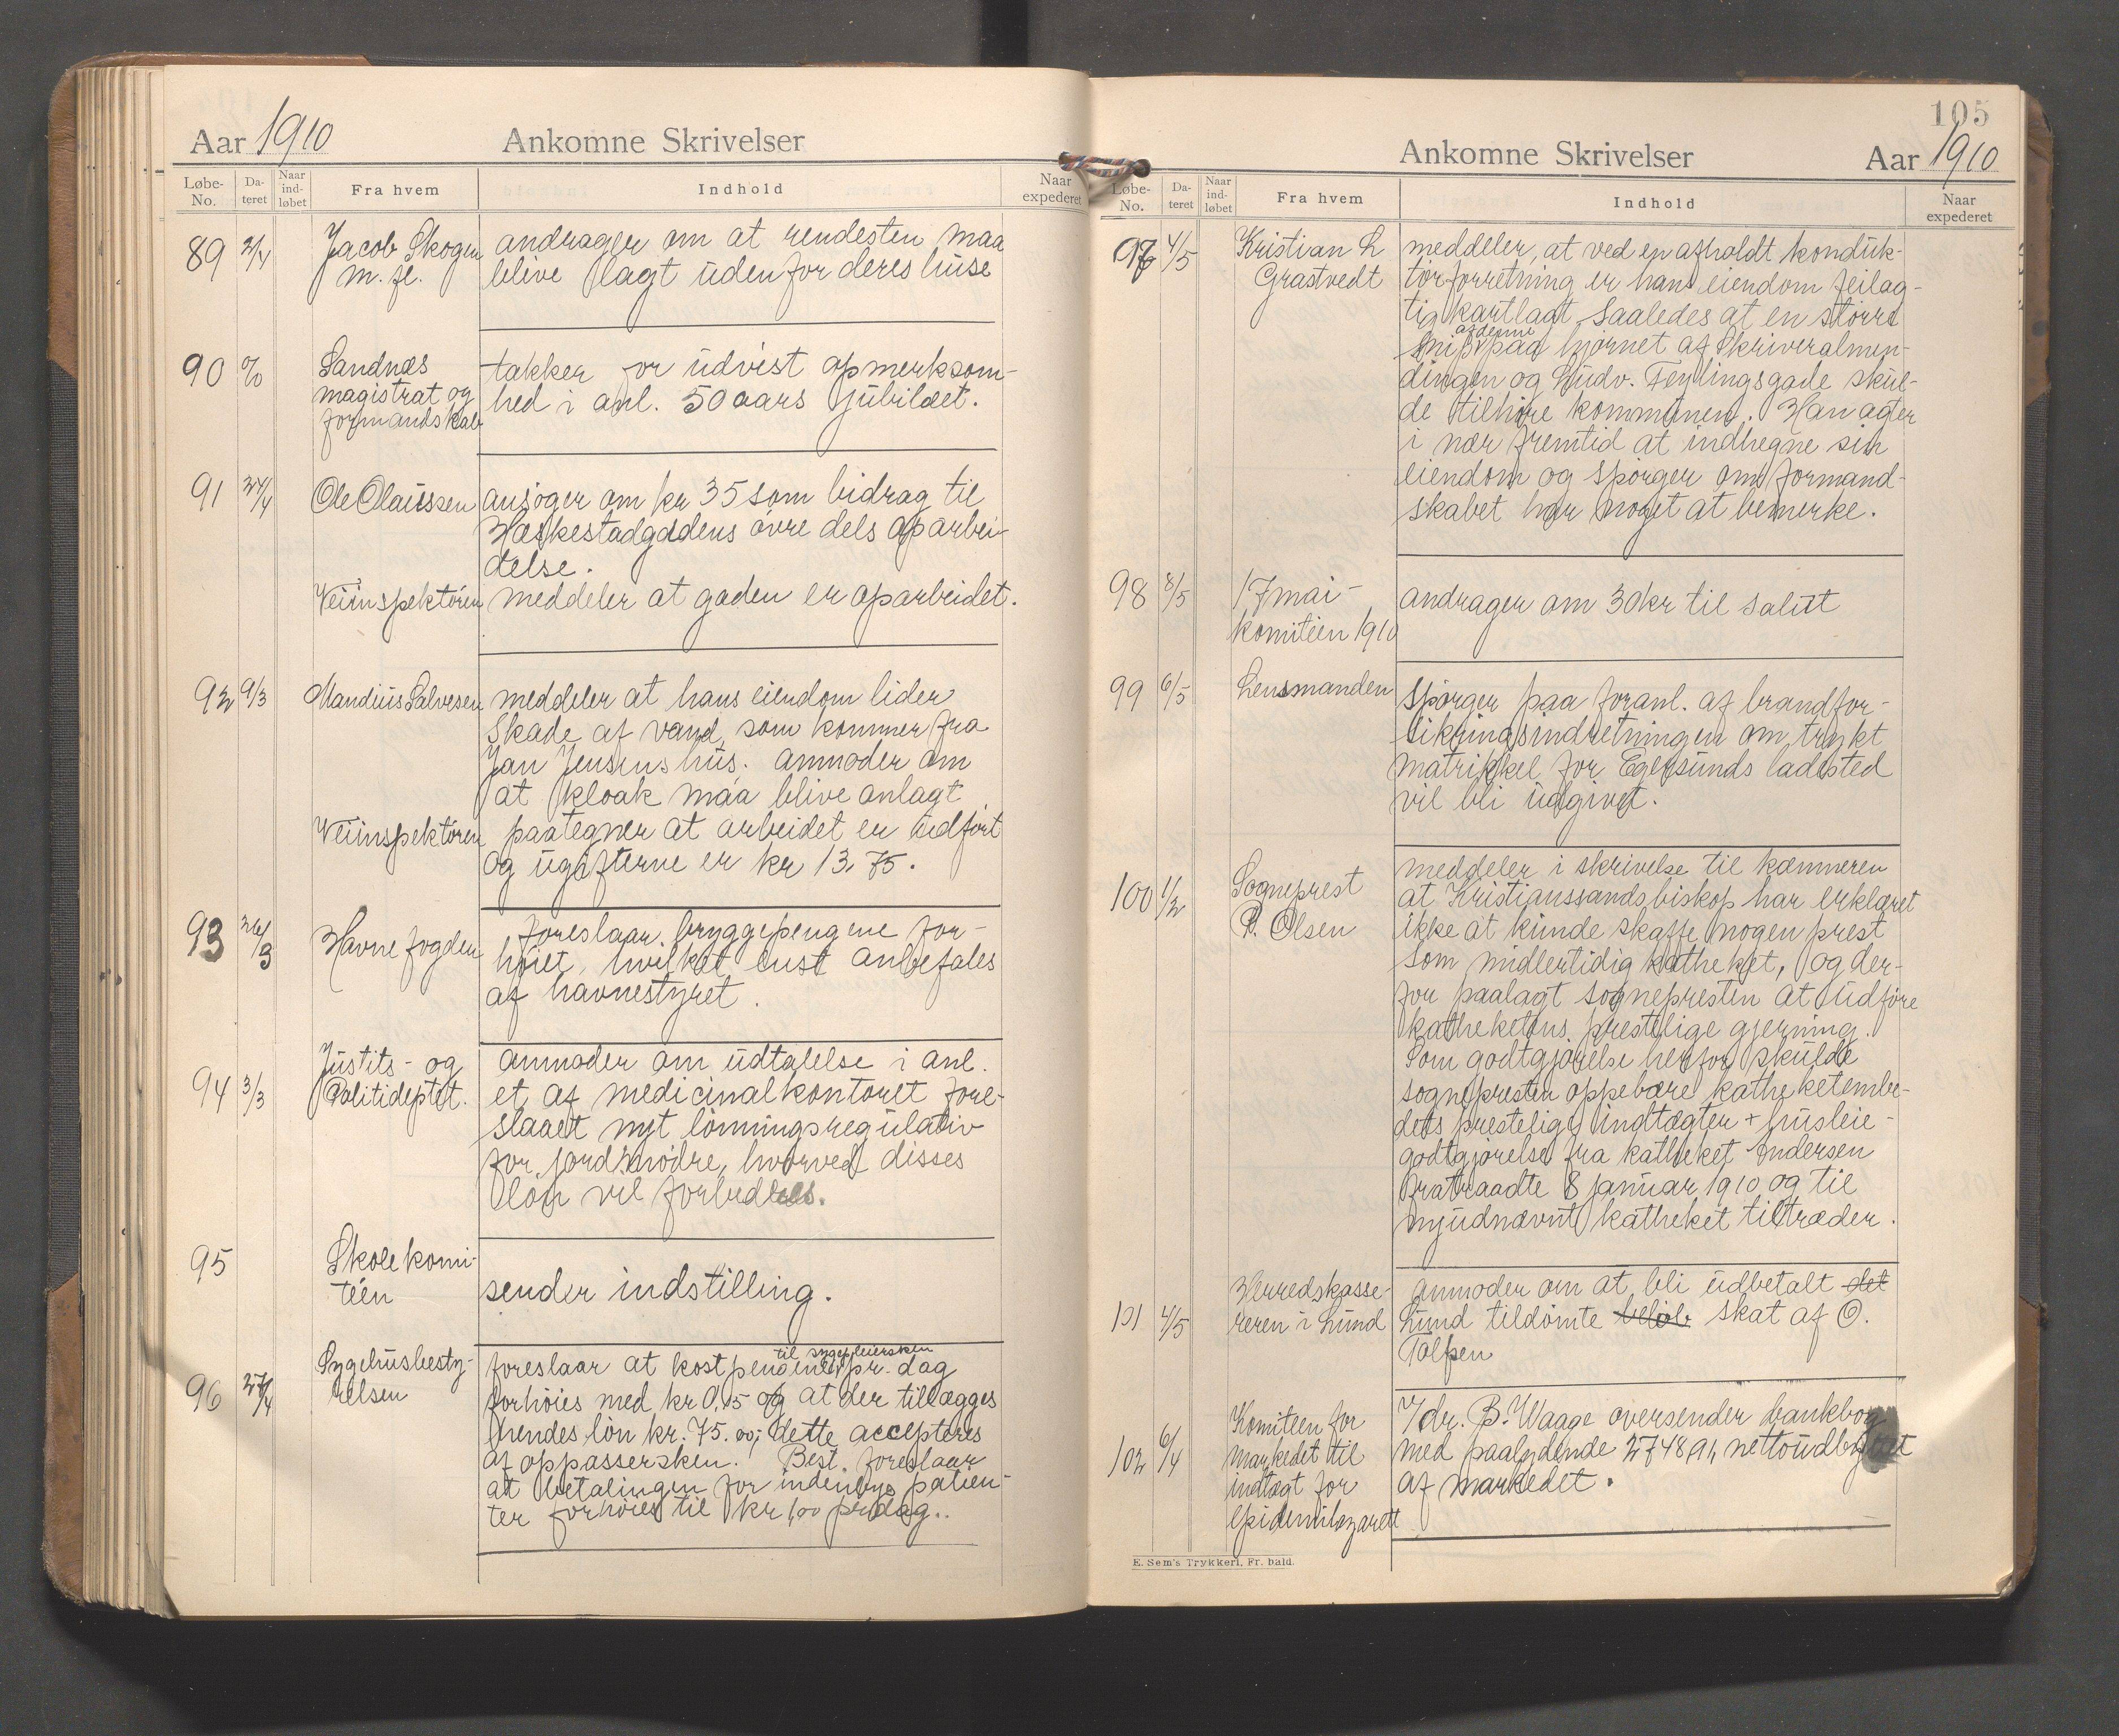 Aar 1910 Ankomne Skrivelser
Løbe-No. Da-teret Naar ind-løbet Fra hvem Indhold Naar expederet
89 2/4 Jacob Skogen andrager om at rendesten maa
m. fl. blive lagt udenfor deres huse
90 0/0 Sandnæs takker for udvist opmerksom-
magistrat og hed i anl. 50 aars jubilæet.
formandskab
91 24/4 Ole Olaussen ansøger om kr 35 som bidrag til
Hæskestadgadens øvre dels oparbei-
delse.
Veiinspektøren meddeler at gaden er oparbeidet.
92 9/3 Mandius Salvesen meddeler at hans eiendom lider
skade af vand, som kommer fra
Jan Jensens hus. Anmoder om
at kloak maa blive anlagt
Veiinspektøren paategner at arbeidet er udført
og ugifterne er kr 13,75.
93 26/3 Havnefogden foreslaar bryggepengene for-
høiet, hvilket enst anbefales
af havnestyret.
94 3/3 Justits- og anmoder om udtalelse i anl.
Politideptet. et af medicinalkontoret fore-
slaaet nyt lønningsregulativ
for jordmødre, hvorved disses
løn vil forbedres.
95 Skolekomi-
téen sender indstilling.
96 27/4 Sygehusbesty- foreslaar at kostpengene til sygepleiersken pr. dag
relsen forhøies med kr 0,15 og at der tillægges
hendes løn kr. 75.00; dette accepteres
af oppassersken. Best. foreslaar
at betalingen for indenbys patien-
ter forhøies til kr 1,00 pr dag..
105
Ankomne Skrivelser Aar 1910
Løbe-No. Da-teret Naar ind-løbet Fra hvem Indhold Naar expederet
97 4/5 Kristian L meddeler, at ved en afholdt konduk-
Grastvedt tørforretning er hans eiendom feilag-
tig kartlagt saaledes at en større
snip af denne paa hjørnet af Skriveralmen-
dingen og Ludv. Feylingsgade skul-
de tilhøre kommunen. Han agter
i nær fremtid at indhegne sin
eiendom og spørger om formand-
skabet har noget at bemerke.
98 8/5 17 mai- andrager om 30 kr til salut
komitéen 1910
99 6/5 Lensmanden spørger paa foranl. af brandfor-
sikringsindretningen om trykt
matrikkel for Egersunds ladested
vil bli udgivet.
100 1/2 Sogneprest meddeler i skrivelse til kæmneren
P. Olsen at Kristianssands biskop har erklæret
ikke at kunde skaffe nogen prest
som midlertidig katheket, og der-
for paalagt sognepresten at udføre
katheketens prestelige gjerning.
Som godtgjørelse herfor skulde
sognepresten oppebære katheketembe-
dets prestelige indtægter + husleie-
godtgjørelse fra katheket Andersen
fratraadte 8 januar 1910 og til
nyudnævnt katheket tiltræder.
101 4/5 Herredskasse- anmoder om at bli udbetalt det
reren i Lund Lund tildømte beløb skat af O.
102 6/4 Komitéen for v/dr. B. Waage oversender bankbog
markedet til med paalydende 2748,91, nettoudbyttet
indtægt for af markedet.
epidemilazarett
E. Sem's Trykkeri, Fr.hald.